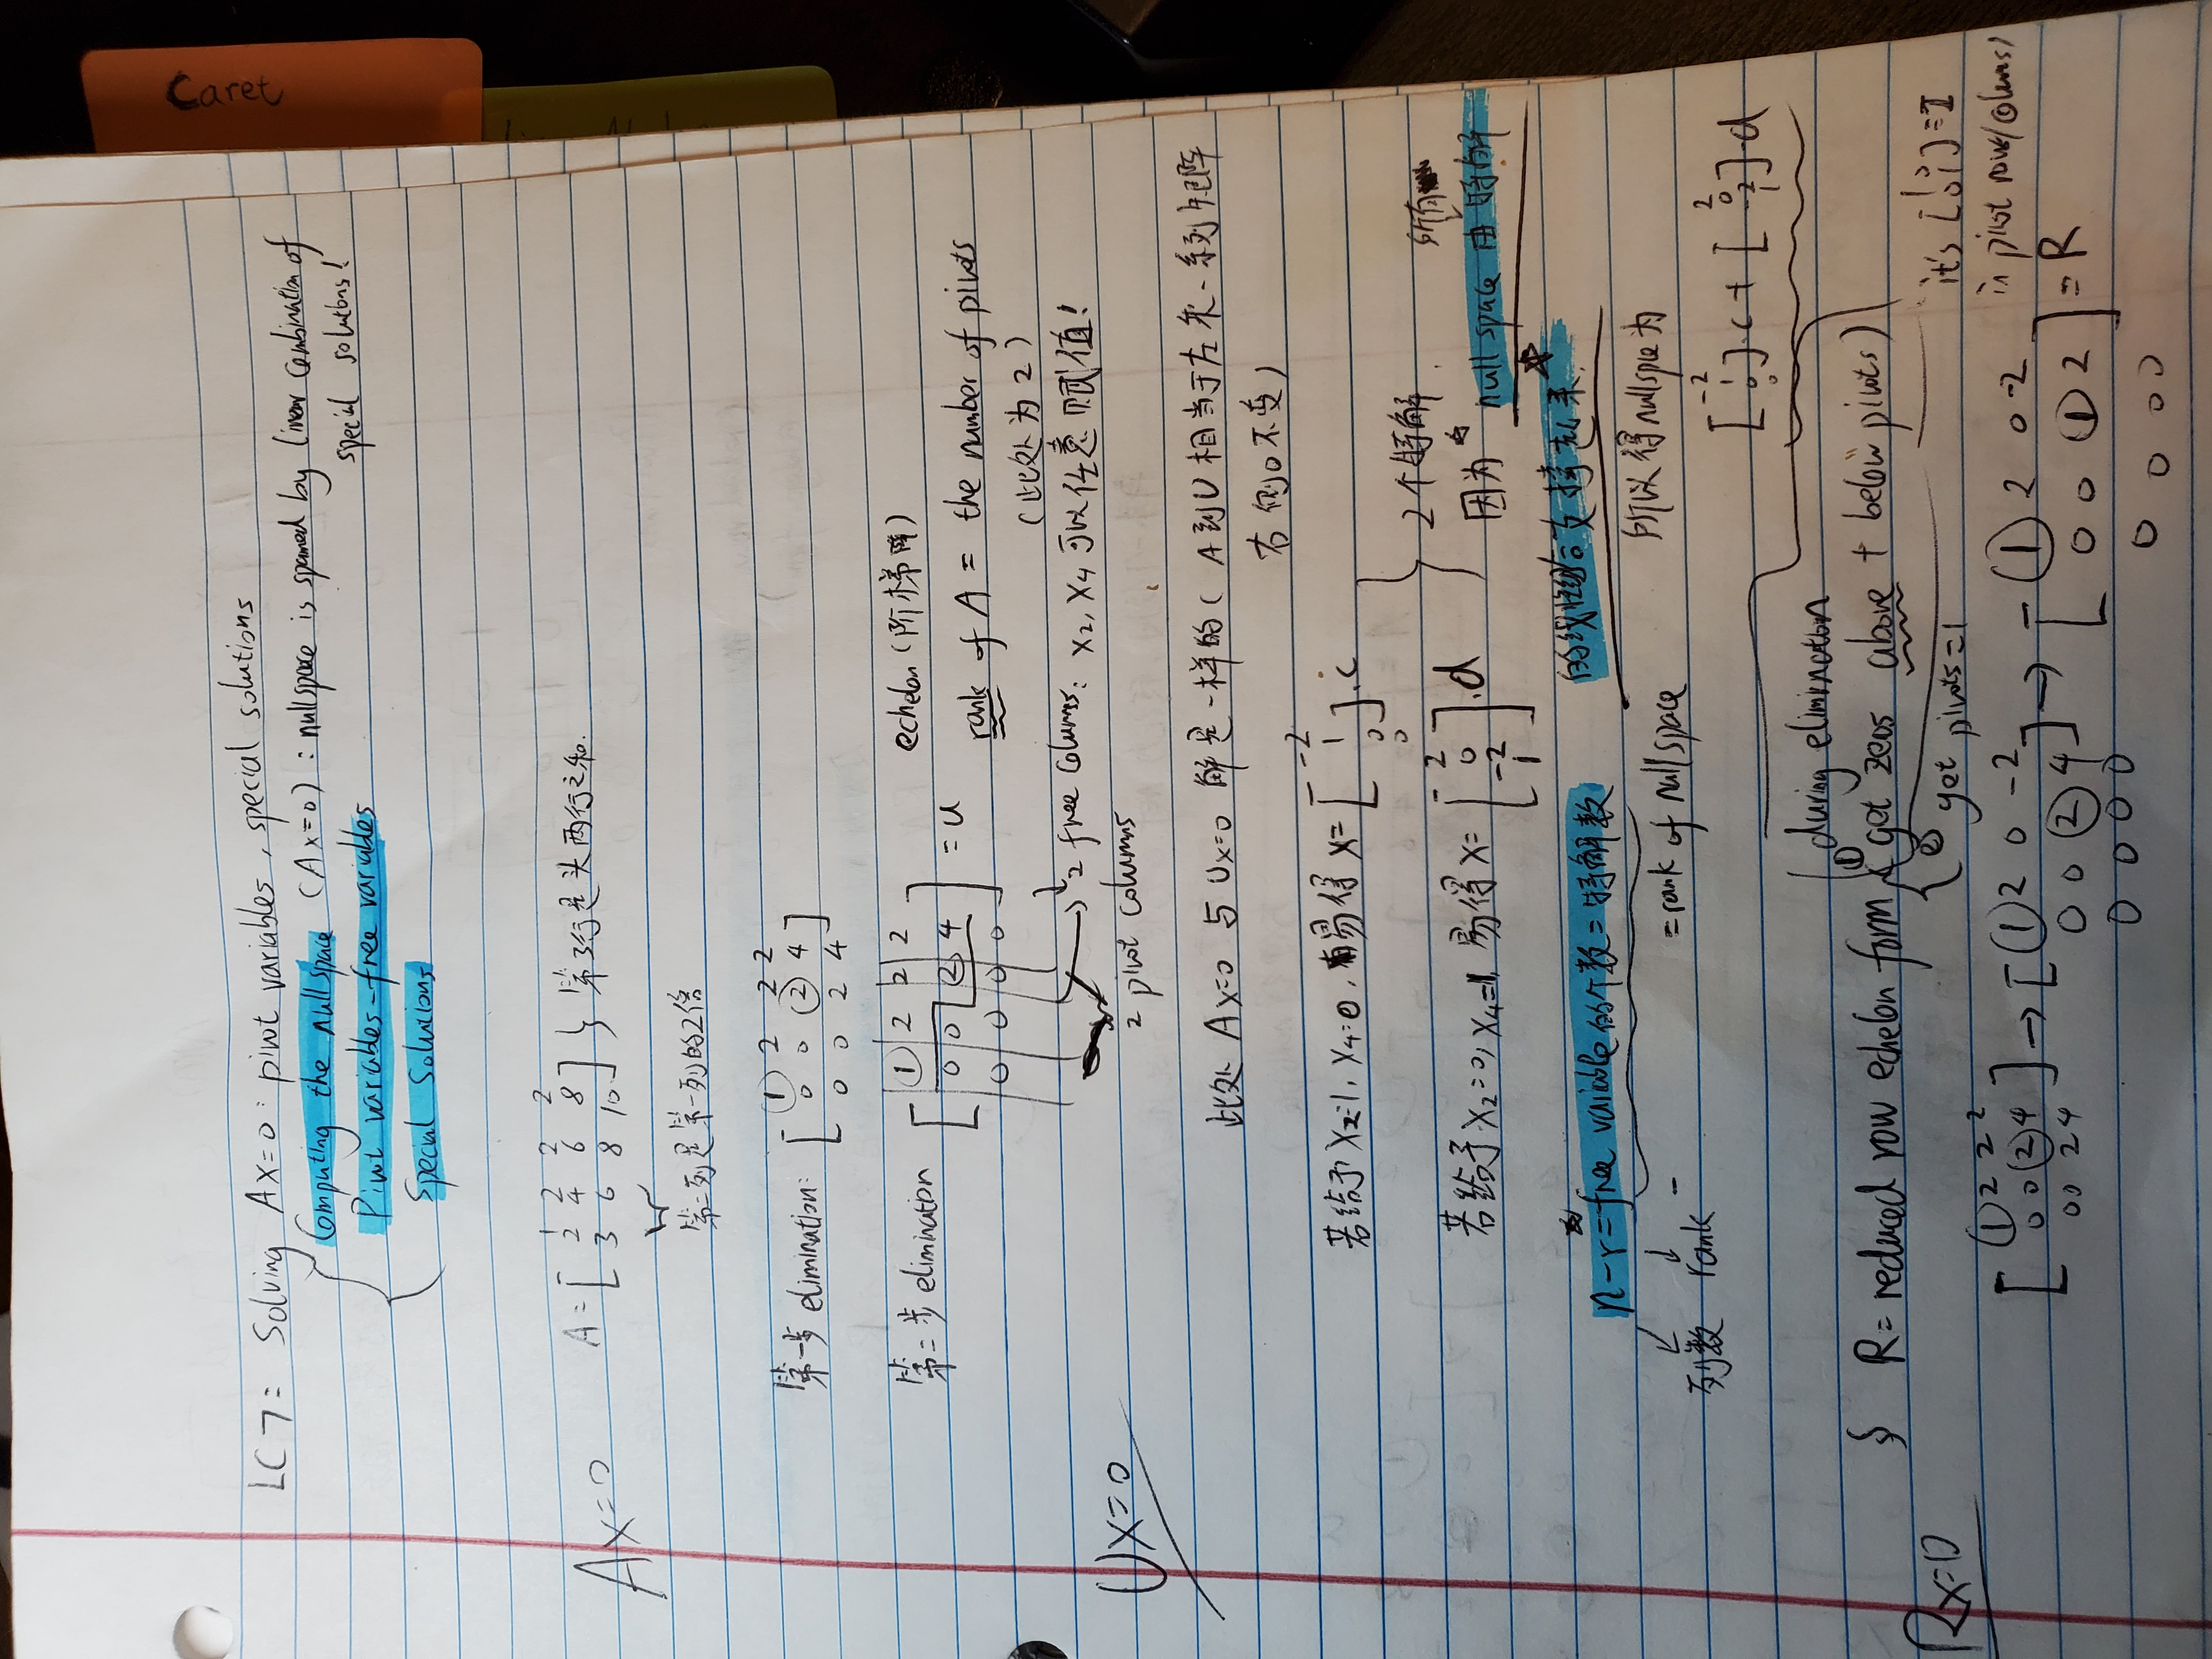 Caret
LC7: Solving Ax=0: pivot variables, special solutions
Computing the nullspace (Ax=0): nullspace is spanned by linear combination of
special solutions!
Pivot variables-free variables
Special Solutions
Ax=0
A=[
1 2 2 2
2 4 6 8
3 6 8 10
] } 第3行是头两行之和.
第二列是第一列的2倍
第一步 elimination:
[
① 2 2 2
0 0 ② 4
0 0 2 4
]
第二步 elimination
[
① 2 2 2
0 0 ② 4
0 0 0 0
] = U
echelon (阶梯阵)
rank of A = the number of pivots
(此处为2)
2 free columns: x2, x4 可以任意赋值!
2 pivot columns
Ux=0
此处 Ax=0 与 Ux=0 解是一样的( A到U相当于左乘一系列矩阵
右侧0不变)
若给予 x2=1, x4=0, 易得 x= [
-2
1
0
0
].c
若给予 x2=0, x4=1, 易得 x= [
2
0
-2
1
].d
2个特解.
因为 null space 由所有特解
的线性组合支撑起来.
n-r=free variable的个数=特解数
列数 rank
=rank of nullspace
所以得nullspce为
[
-2
1
0
0
].c + [
2
0
-2
1
].d
Rx=0
§ R= reduced row echelon form
during elimination
① (get zeos above + below pivots)
② get pivots=1
it's [
1 0
0 1
]=I
in pivot rows/columns)
[
① 2 2 2
0 0 ② 4
0 0 2 4
] → [
① 2 0 -2
0 0 ② 4
0 0 0 0
] → [
① 2 0 -2
0 0 ① 2
0 0 0 0
] = R